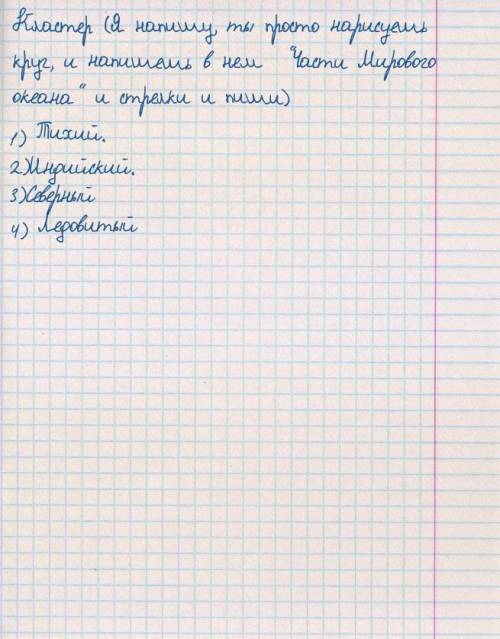 Кластер (Я напишу, ты просто нарисуешь
круг, и напишешь в нем "Части Мирового
океана" и стрелки и пиши)
1) Тихий.
2) Индийский.
3) Северный
4) Ледовитый